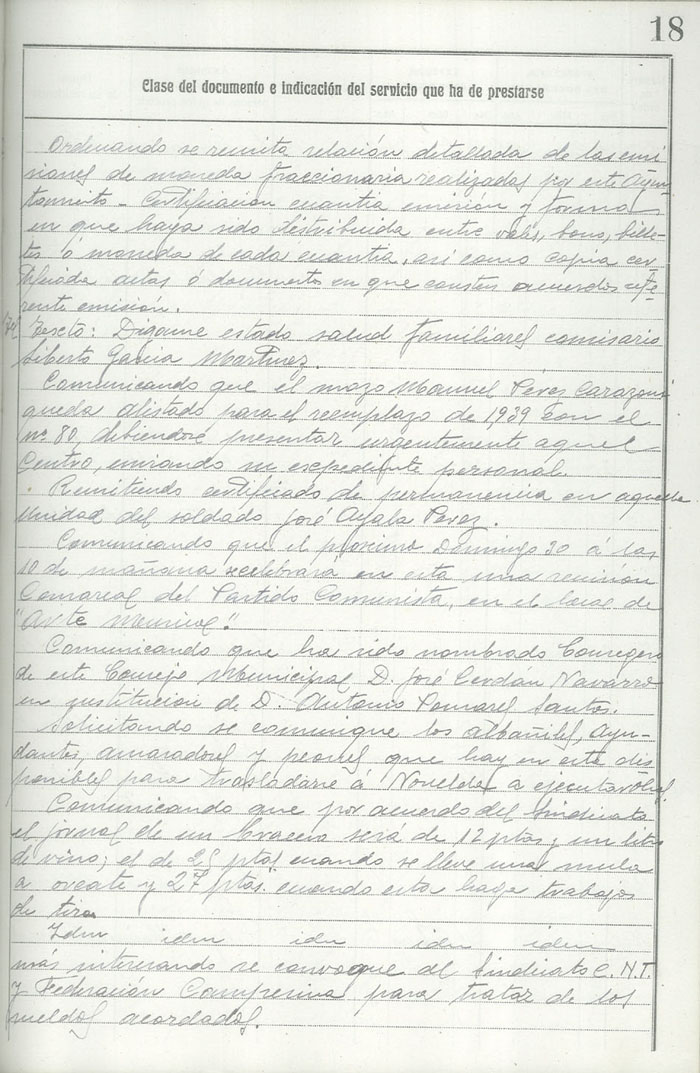 18
Clase del documento e indicación del servicio que ha de prestarse
Ordenando se remita relación detallada de las emi
siones de moneda fraccionaria realizadas por este Ayun
tamiento - Certificación cuantia emisión y forma
en que haya sido distribuida entre vales, bonos, bille-
tes ó moneda de cada cuantia, asi como copia cer
tificada actas ó documentos en que consten acuerdos refe-
rente emisión.
Texto: Digame estado salud familiares comisario
Liberto Garcia Martinez.
Comunicando que el mozo Manuel Pérez Carazona
queda alistado para el reemplazo de 1939 con el
nº 80, debiendose presentar urgentemente aquel
Centro, enviando su expediente personal.
Remitiendo certificado de permanencia en aquella
Unidad del soldado José Ayala Perez.
Comunicando que el proximo Domingo 30 á las
10 de mañana se celebrará en esta una reunión
Comarcal del Partido Comunista, en el local de
"Arte Musical".
Comunicando que ha sido nombrado Consegero
de este Consejo Municipal D. José Cerdán Navarro
en sustitucion de D. Antonio Pomares Santos.
Solicitando se comunique los albañiles, Ayu-
dantes, amasadores y peones que hay en esta dis
ponibles para trasladarse á Novelda a ejecutar obras
Comunicando que por acuerdo del Sindicato
el jornal de un bracero será de 12 ptas y un litro
de vino; el de 25 ptas cuando se lleve una mula
a y 27 ptas. cuando esta haga trabajos
de tiro
Idem idem idem idem idem
más interesando se convoque al Sindicato C.N.T.
y Federación Campesina para tratar de los
sueldos acordados.